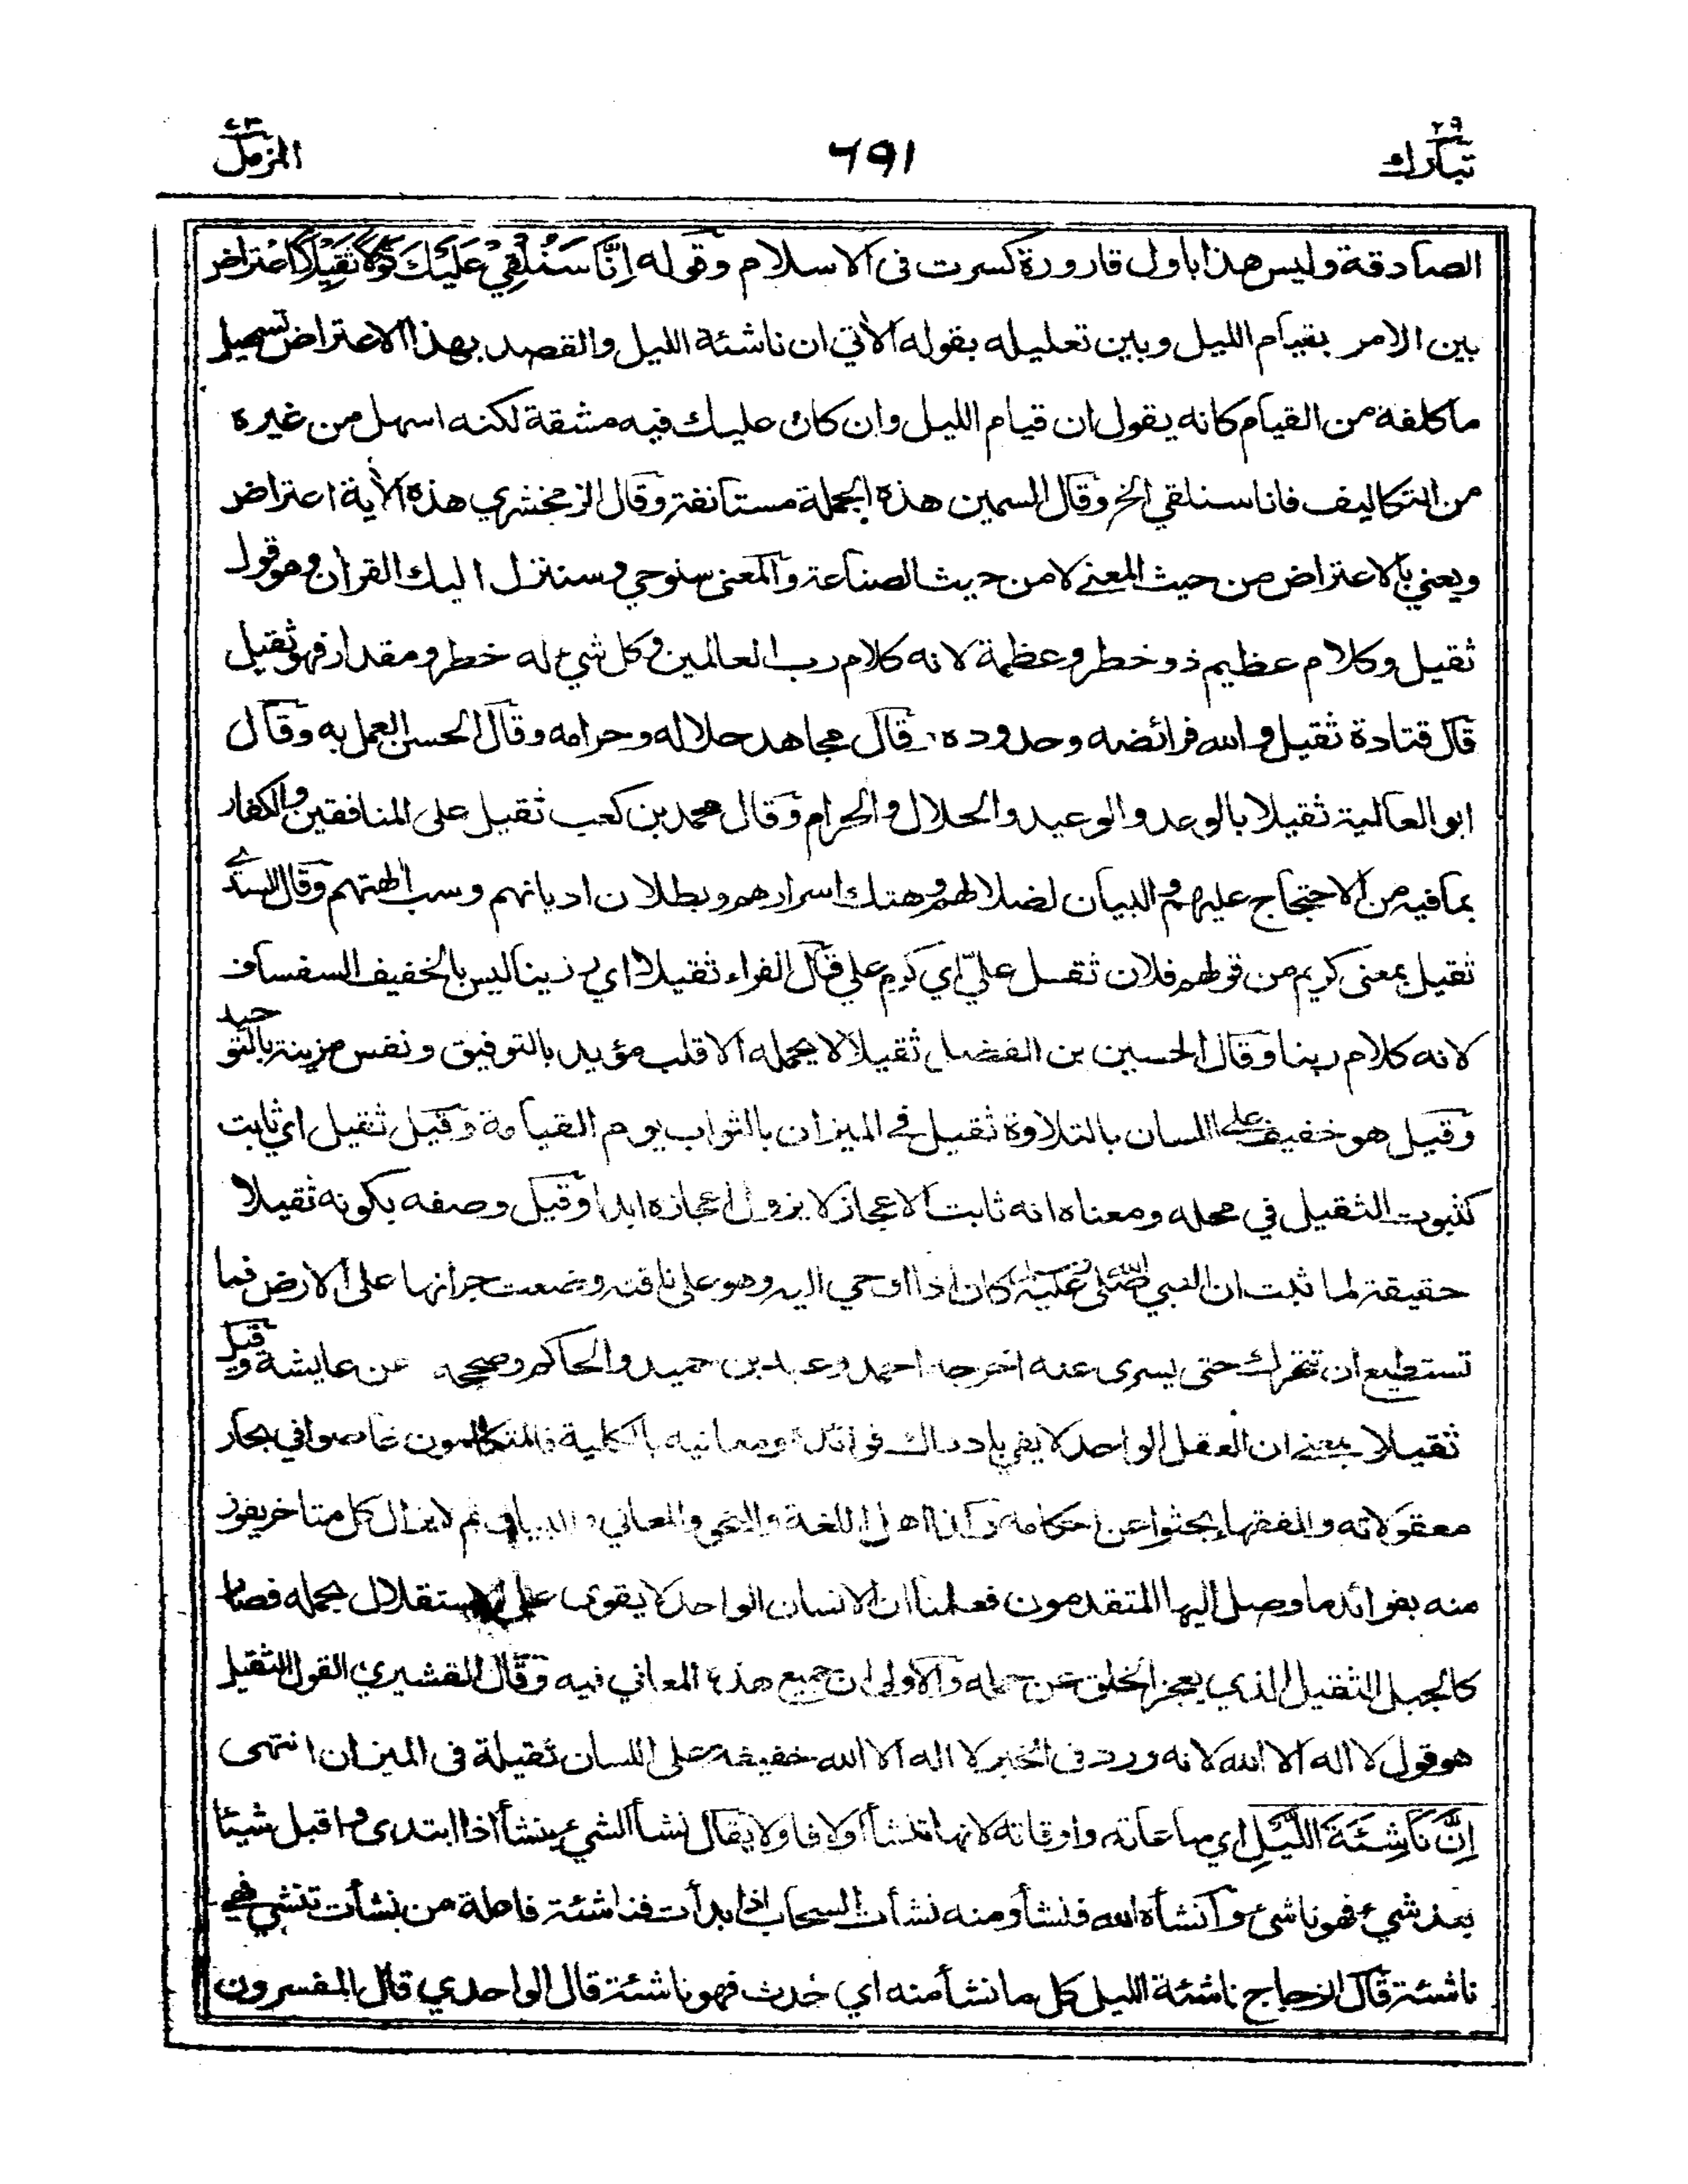 تبارك ٢٩
٦٩١
المزمل ٧٣
الصادقة وليس هذا باول قارورة كسرت فى الاسلام وقوله اِنَّا سَنُلْقِيْ عَلَيْكَ قَوْلًا ثَقِيْلًا اعتراض
بين الامر بقيام الليل وبين تعليله بقوله الأتي ان ناشئة الليل والقصد بهذا الاعتراض تسهيل
ما كلفه من القيام كانه يقول ان قيام الليل وان كان عليك فيه مشقة لكنه اسهل من غيره
من التكاليف فانا سنلقي الخ وقال السمين هذه الجملة مستانفة وقال الزمخشري هذه الأية اعتراض
ويعني بالاعتراض من حيث المعنے لا من حيث الصناعة والمعنى سنوحي وسننزل اليك القران وهو قول
ثقيل وكلام عظيم ذو خطر وعظمة لانه كلام رب العالمين وكل شيء له خطر ومقدار فهو ثقيل
قال قتادة ثقيل والله فرائضه وحدوده قال مجاهد حلاله وحرامه وقال الحسن العمل به وقال
ابو العالية ثقيلا بالوعد والوعيد والحلال والحرام وقال محمد بن كعب ثقيل على المنافقين والكفار
بما فيه من الاحتجاج عليهم والبيان لضلالهم وهتك اسرارهم وبطلان اديانهم وسب الهتهم وقال السدي
ثقيل بمعنى كريم من قولهم فلان ثقل عليّ اي كرم علي قال الفراء ثقيلا اي رزينا ليس بالخفيف السفساف
لانه كلام ربنا وقال الحسين بن الفضل ثقيلا لا يحمله الا قلب مؤيد بالتوفيق ونفس مزينة بالتوحيد
وقيل هو خفيف على اللسان بالتلاوة ثقيل في الميزان بالثواب يوم القيامة وقيل ثقيل اي ثابت
كثبوت الثقيل في محله ومعناه انه ثابت الاعجاز لا يزول اعجازه ابدا وقيل وصفه بكونه ثقيلا
حقيقة لما ثبت ان النبي صلى الله عليه كان اذا اوحي اليه وهو على ناقته وضعت جرانها على الارض فما
تستطيع ان تتحرك حتى يسرى عنه اخرجه احمد وعبد بن حميد والحاكم وصححه عن عايشة وقيل
ثقيلا بمعنے ان العقل الواحد لا يفي بادراك فوائده ومعانيه بالكلية فالمتكلمون غاصوا في بحار
معقولاته والفقهاء بحثوا عن احكامه وكذا اهل اللغة والنحو والمعاني والبيان ثم لا يزال كل متاخر يفوز
منه بفوائد ما وصل اليها المتقدمون فعلمنا ان الانسان الواحد لا يقوى على الاستقلال بحمله فصار
كالجبل الثقيل الذي يعجز الخلق عن حمله والاولى ان جميع هذه المعاني فيه وقال القشيري القول الثقيل
هو قول لا اله الا الله لانه ورد فى الخبر لا اله الا الله خفيفة على اللسان ثقيلة فى الميزان انتهى
اِنَّ نَاشِئَةَ اللَّيْلِ اي ساعاته واوقاته لانها تنشأ اولا فاولا يقال نشأ الشيء ينشأ اذا ابتدى واقبل شيئا
بعد شيء فهو ناشئ وانشأه الله فنشأ ومنه نشأت السحاب اذا بدأت فناشئة فاعلة من نشأت تنشي فهي
ناشئة قال الزجاج ناشئة الليل كل ما نشأ منه اي حدث فهو ناشئة قال الواحدي قال المفسرون